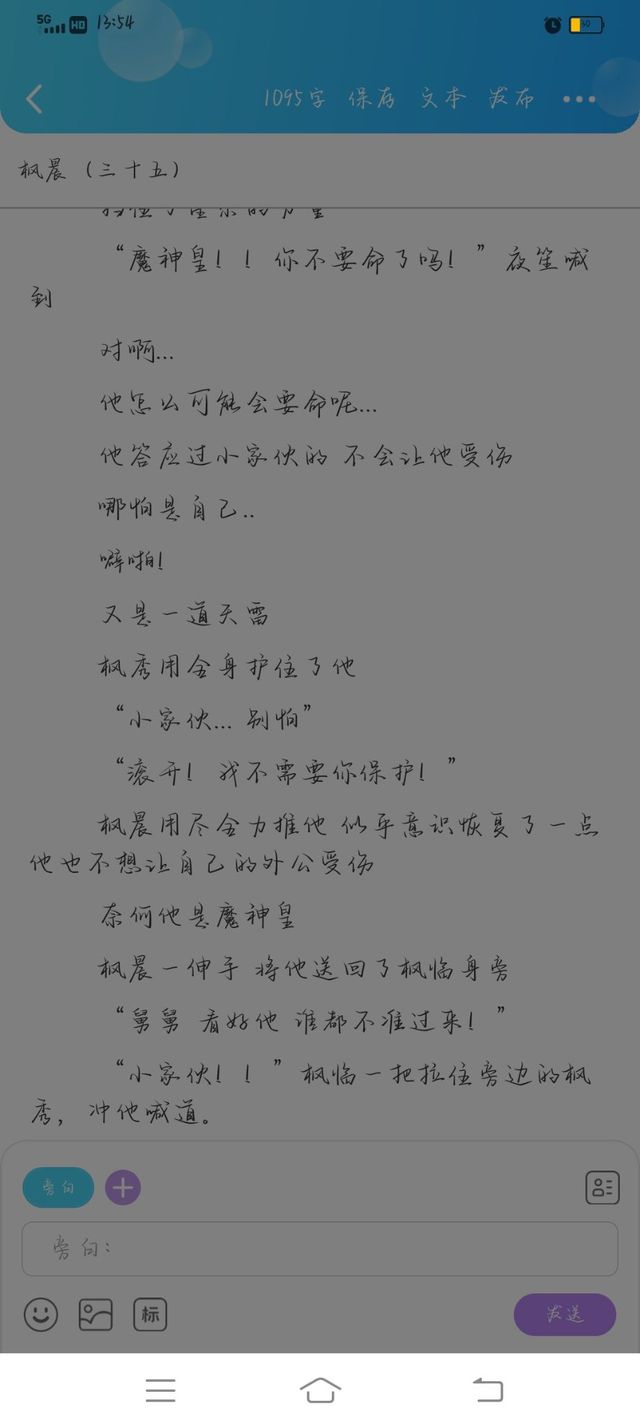 5G HD 13:54 40
1095字 保存 文本 发布
枫晨（三十五）
“魔神皇！！你不要命了吗！”夜笙喊
到
对啊...
他怎么可能会要命呢...
他答应过小家伙的 不会让他受伤
哪怕是自己..
噼啪！
又是一道天雷
枫秀用全身护住了他
“小家伙... 别怕”
“滚开！我不需要你保护！”
枫晨用尽全力推他 似乎意识恢复了一点
他也不想让自己的外公受伤
奈何他是魔神皇
枫晨一伸手 将他送回了枫临身旁
“舅舅 看好他 谁都不准过来！”
“小家伙！！”枫临一把拉住旁边的枫
秀，冲他喊道。
旁白
旁白：
标
发送